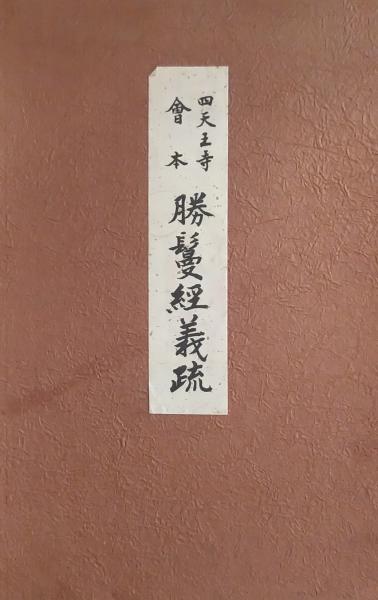 四天王寺
會本
勝鬘經義疏